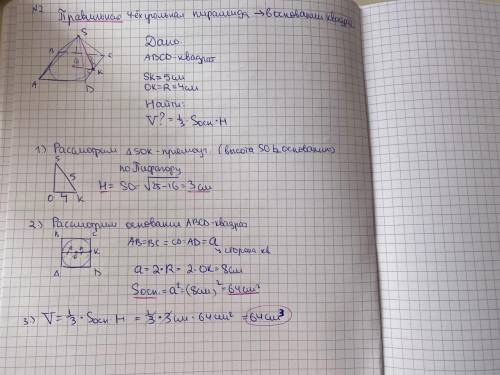 №2 Правильная четырёхугольная пирамида → в основании квадрат
S
B
C
O
K
A
D
Дано:
ABCD-квадрат
SK=5см
OK=R=4см
Найти:
V?=1/3·Sосн·H
1) Рассмотрим ΔSOK-прямоуг. (высота SO ⊥ основанию)
S
5
O 4 K
по Пифагору
H = SO = √25-16 = 3 см
2) Рассмотрим основание ABCD-квадрат
B
C
K
A
D
AB=BC=CD=AD=a
сторона кв
a=2·R=2·OK=8см
Sосн.=a²=(8см)²=64см²
3.) V=1/3·Sосн H = 1/3·3см·64см²=64см³